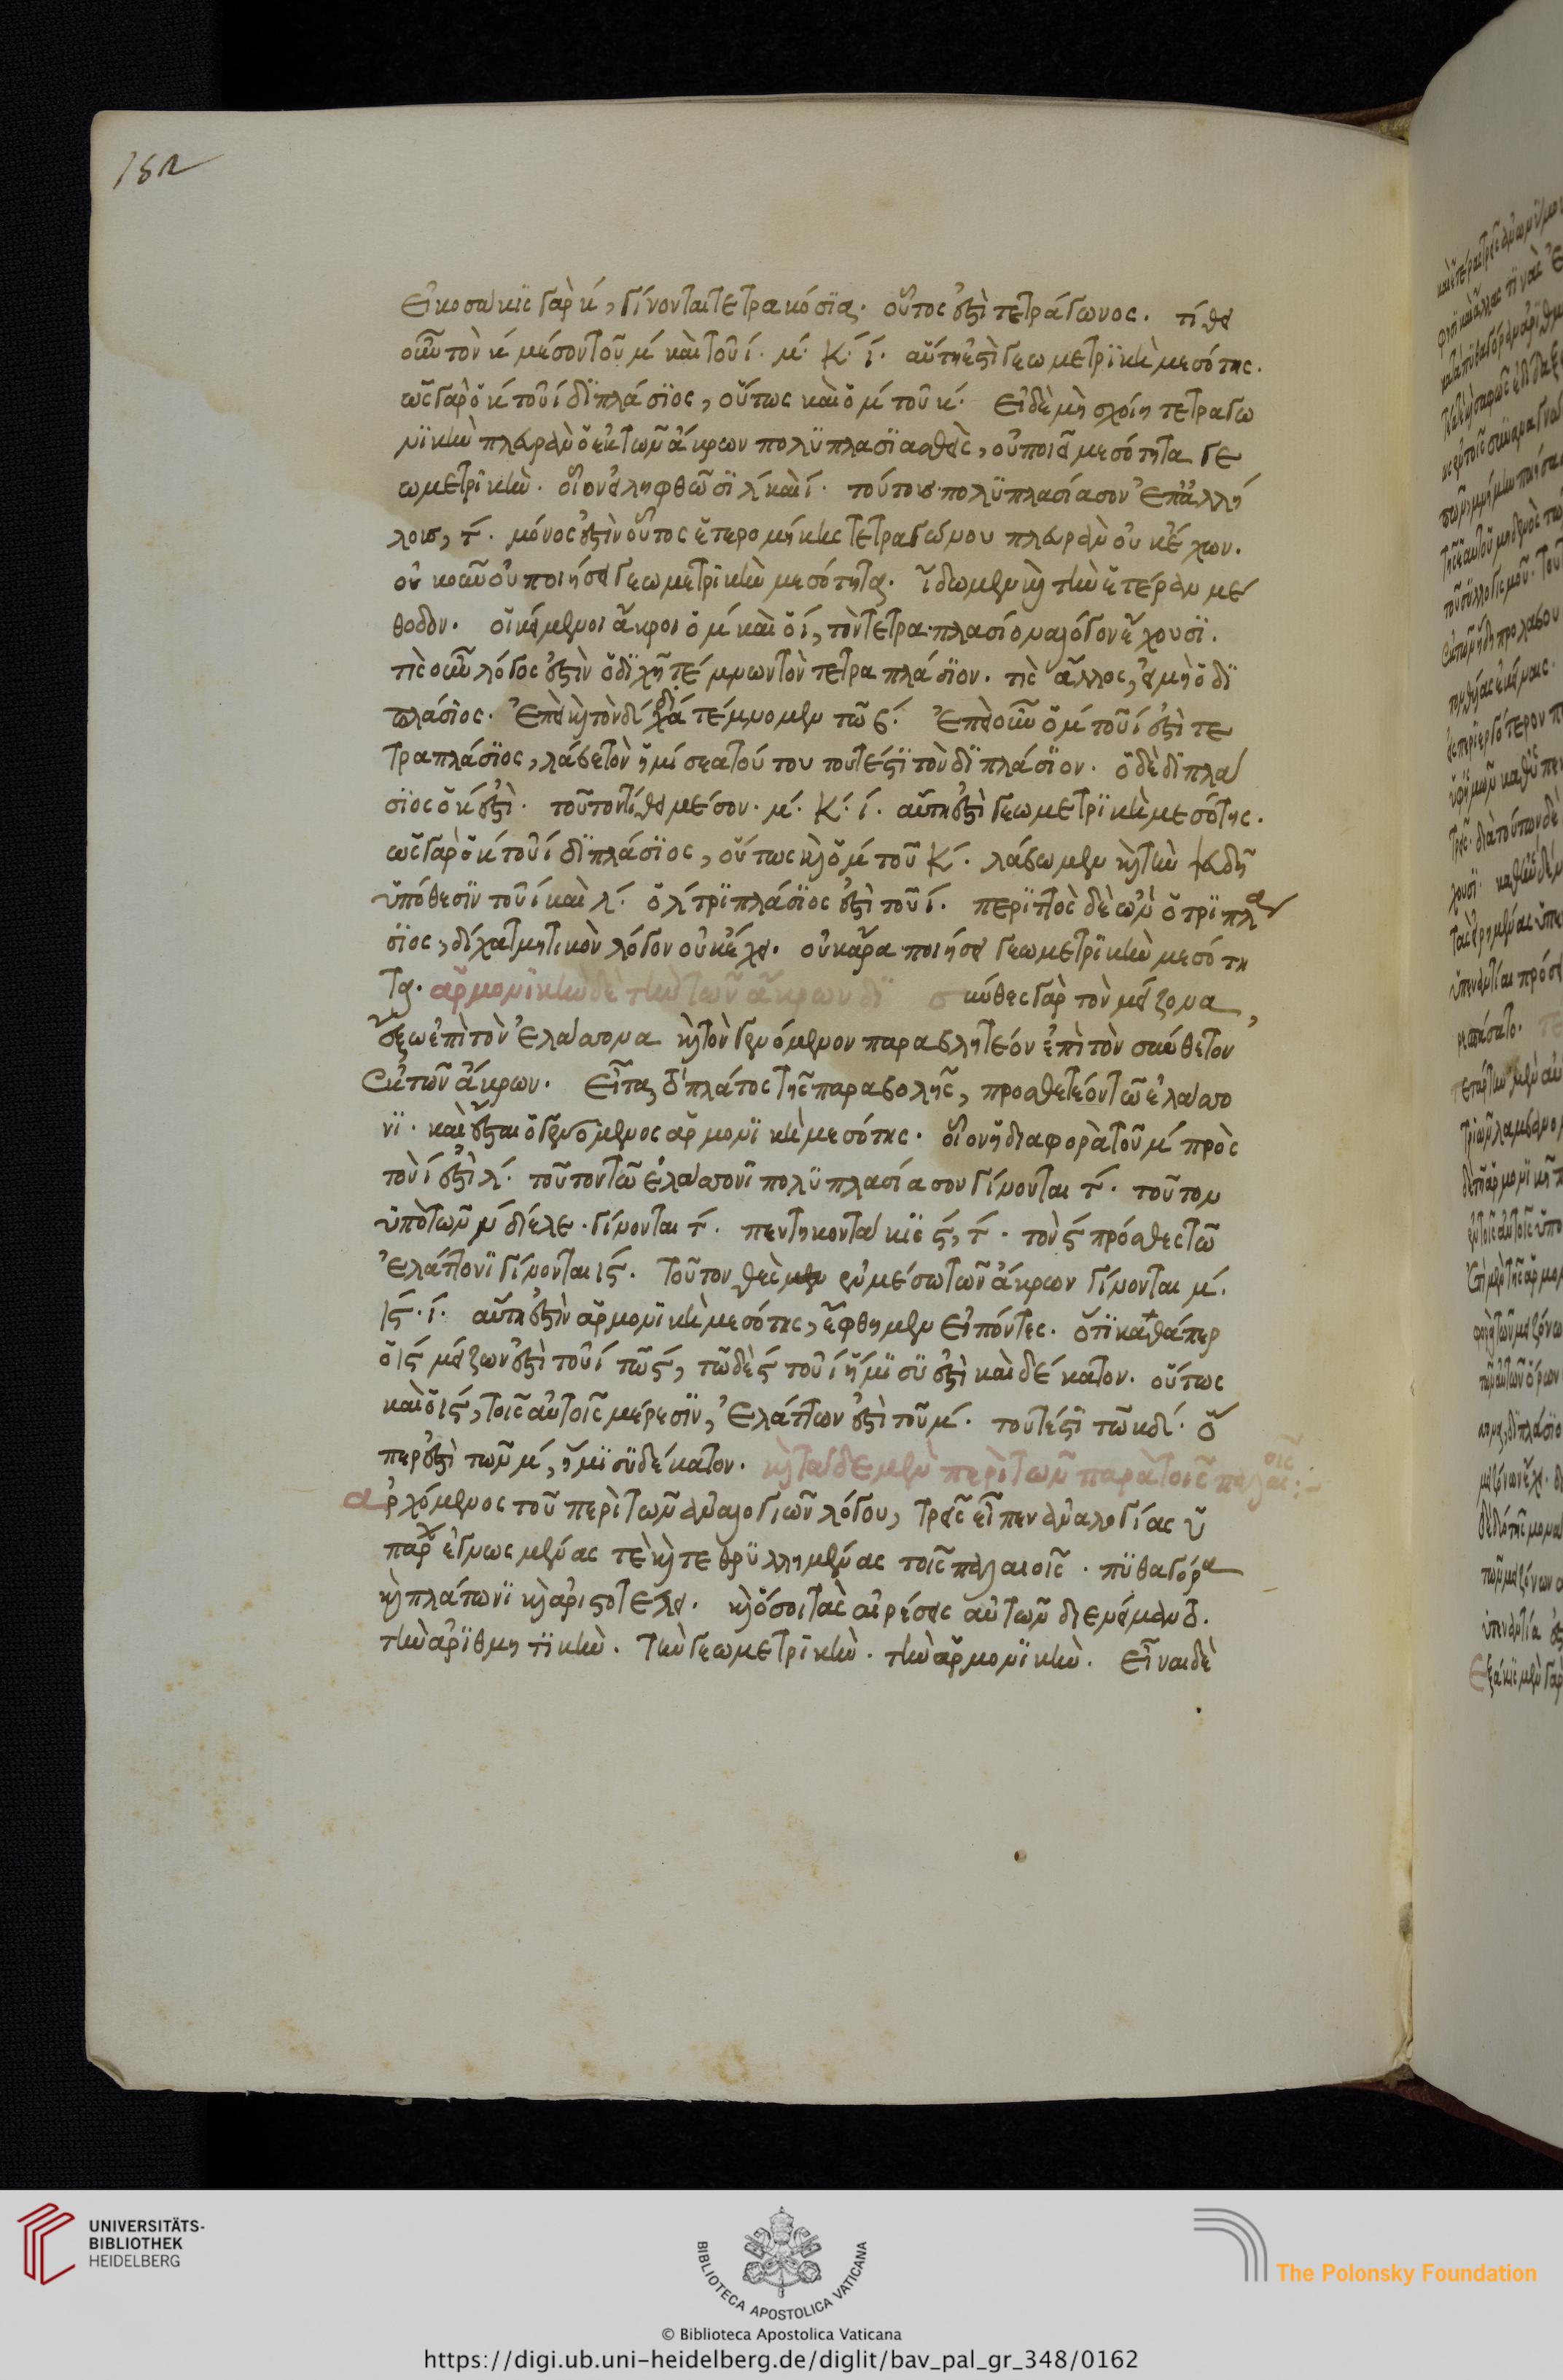 152
εἰκοσάκις γὰρ κ', γίνονται τετρακόσια. οὗτος ἐστὶ τετράγωνος. τίθει
οὖν τὸν κ' μέσον τοῦ μ' καὶ τοῦ ι'. μ'. κ'. ι'. αὕτη ἐστὶ γεωμετρικὴ μεσότης.
ὡς γὰρ ὁ κ' τοῦ ι' διπλάσιος, οὕτως καὶ ὁ μ' τοῦ κ'. εἰ δὲ μὴ σχοίη τετραγω
νικὴν πλευρὰν ὁ ἐκ τῶν ἄκρων πολυπλασιασθεὶς, οὐ ποιεῖ μεσότητα γε
ωμετρικὴν. οἷον εἰλήφθωσι λ' καὶ ι'. τούτους πολυπλασίασον ἐπ' ἀλλή
λοις, τ'. μόνος ἐστὶν οὗτος ἑτερομήκης τετραγώνου πλευρὰν οὐκ ἔχων.
οὐκοῦν οὐ ποιήσει γεωμετρικὴν μεσότητα. ἴδωμεν καὶ τὴν ἑτέραν μέ
θοδον. οἱ κείμενοι ἄκροι ὁ μ' καὶ ὁ ι', τὸν τετραπλασίονα λόγον ἔχουσι.
τίς οὖν λόγος ἐστὶν ὁ διχῆ τέμνων τὸν τετραπλάσιον. τίς ἄλλος, εἰ μὴ ὁ δι
πλάσιος. ἐπεὶ καὶ τὸν δ' δίχα τέμνομεν τῷ β'. ἐπεὶ οὖν ὁ μ' τοῦ ι' ἐστὶ τε
τραπλάσιος, λάβε τὸν ἥμισεα τούτου τουτέστι τὸν διπλάσιον. ὁ δὲ διπλά
σιος ὁ κ' ἐστὶ. τοῦτον τίθει μέσον. μ'. κ'. ι'. αὕτη ἐστὶ γεωμετρικὴ μεσότης.
ὡς γὰρ ὁ κ' τοῦ ι' διπλάσιος, οὕτως καὶ ὁ μ' τοῦ κ'. λάβωμεν καὶ τὴν
ὑπόθεσιν τοῦ ι' καὶ λ'. ὁ λ' τριπλάσιος ἐστὶ τοῦ ι'. περιττὸς δὲ ὢν ὁ τριπλά
σιος, δίχα τμητικὸν λόγον οὐκ ἔχει. οὐκ ἄρα ποιήσει γεωμετρικὴν μεσότη
τα. ἁρμονικὴν δὲ τὴν τῶν ἄκρων δι σκύθες γὰρ τὸν μείζονα
ἔξω ἐπὶ τὸν ἐλάσσονα καὶ τὸν γενόμενον παραβλητέον ἐπὶ τὸν σύνθετον
ἐκ τῶν ἄκρων. εἶτα τὸ πλάτος τῆς παραβολῆς, προσθετέον τῷ ἐλάσσο
νι. καὶ ἔσται ὁ γενόμενος ἁρμονικὴ μεσότης. οἷον ἡ διαφορὰ τοῦ μ' πρὸς
τὸν ι' ἐστὶ λ'. τοῦτον τῷ ἐλάσσονι πολυπλασίασον γίνονται τ'. τοῦτον
ὑπὸ τῶν ν' δίελε. γίνονται τ'. πεντηκοντάκις ϛ', τ'. τὸν ϛ' πρόσθες τῷ
ἐλάττονι γίνονται ιϛ'. τοῦτον θὲς ἐν μέσῳ τῶν ἄκρων γίνονται μ'.
ιϛ'. ι'. αὕτη ἐστὶν ἁρμονικὴ μεσότης, ἔφθημεν εἰπόντες. ὅτι καθάπερ
ὁ ιϛ' μείζων ἐστὶ τοῦ ι' τῷ ϛ', τῷ δὲ ϛ' τοῦ ι' ἥμισυ ἐστὶ καὶ δέκατον. οὕτως
καὶ ὁ ιϛ', τοῖς αὐτοῖς μέρεσιν, ἐλάττων ἐστὶ τοῦ μ'. τουτέστι τῷ κδ'. ὅ
περ ἐστὶ τῶν μ', ἥμισυ δέκατον. καὶ τάδε μὲν περὶ τῶν παρὰ τοῖς παλαιοῖς:
ἀρχόμενος τοῦ περὶ τῶν ἀναλογιῶν λόγου, τρεῖς εἶπεν ἀναλογίας
παρ ἐγνωσμένας τε καὶ τεθρυλλημένας τοῖς παλαιοῖς. πυθαγόρα
καὶ πλάτωνι καὶ ἀριστοτέλει. καὶ ὅσοι τὰς αἱρέσεις αὐτῶν διενείμαντο.
τὴν ἀριθμητικὴν. τὴν γεωμετρικὴν. τὴν ἁρμονικὴν. εἶναι δὲ
UNIVERSITÄTS-
BIBLIOTHEK
HEIDELBERG
BIBLIOTECA APOSTOLICA VATICANA
The Polonsky Foundation
© Biblioteca Apostolica Vaticana
https://digi.ub.uni-heidelberg.de/diglit/bav_pal_gr_348/0162